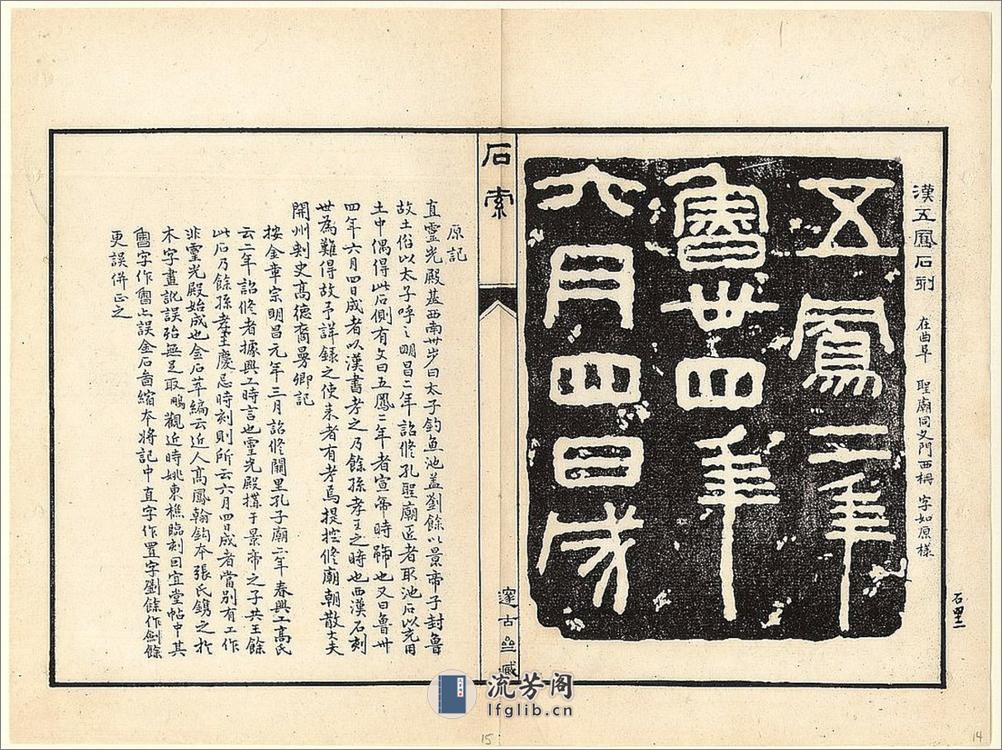 漢五鳳石刻 在曲阜 聖廟同文門西樹 字如原樣
五鳳二年
魯卅四年
六月四日成
石
石索
邃古
藏
原記
直靈光殿基西南卅步曰太子釣魚池蓋劉餘以景帝子封魯
故土俗以太子呼之明昌二年詔修孔聖廟匠者取池石以充用
土中偶得此石側有文曰五鳳二年者宣帝時號也又曰魯卅
四年六月四日成者以漢書考之乃餘孫孝王之時也西漢石刻
世為難得故予詳錄之使來者有考焉提控修廟朝散大夫
開州刺史高德裔曼卿記
按金章宗明昌元年三月詔修闕里孔子廟二年春興工高氏
云二年詔修者據興工時言也靈光殿搆于景帝之子共王餘
此石乃餘孫孝王慶忌時刻則所云六月四日成者當別有工作
非靈光殿始成也金石萃編云近人高鳳翰鈎本張氏鐫之於
木字畫訛誤殆無足取鵬觀近時姚東樵臨刻因宜堂帖中其
魯字作魯上誤金石啚縮本將記中直字作置字劉餘作劍餘
更誤併正之
流芳阁
lfglib.cn
15
14